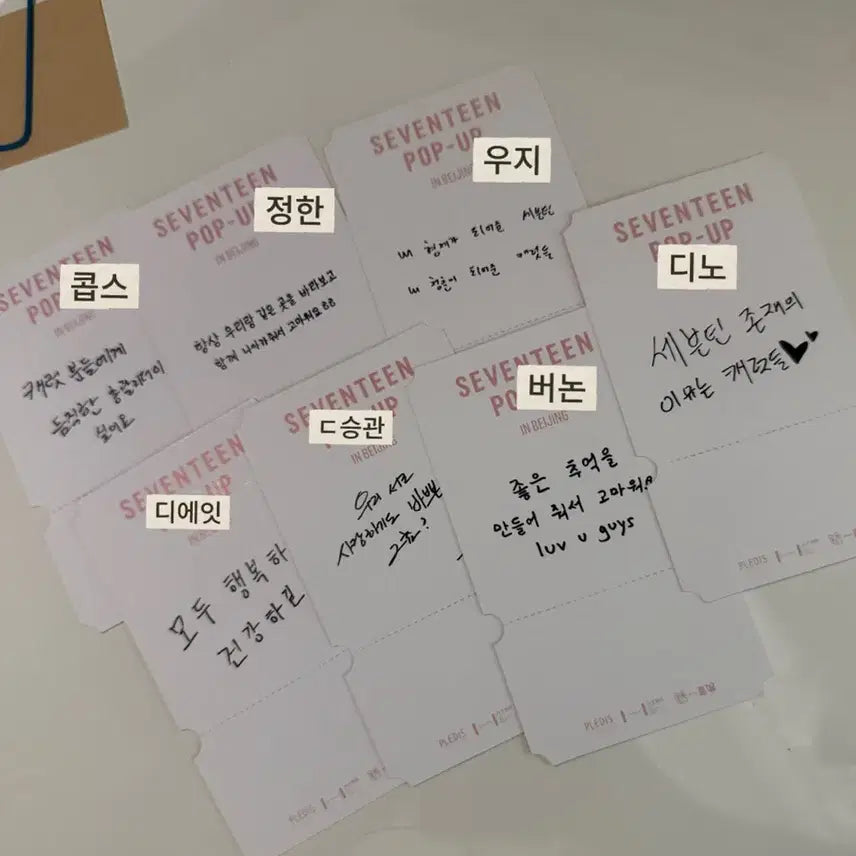 SEVENTEEN
POP-UP
IN BEIJING
우지
내 형제가 되어준 세븐틴
내 청춘이 되어준 캐럿들
SEVENTEEN
POP-U
IN BEIJING
정한
항상 우리랑 같은 곳을 바라보고
함께 나아가줘서 고마워요
SEVENTEEN
POP
콥스
캐럿 분들에게
듬직한 총괄리더이
싶어요
SEVENTEEN
POP-UP
디노
세븐틴 존재의
이유는 캐럿들
PLEDIS
SEVENTEEN
PO
IN BEIJING
버논
좋은 추억을
만들어 줘서 고마워
luv u guys
PLEDIS
SEVENTEEN
UP
IN BEIJING
ㄷ승관
우리 서로
사랑하기도 바쁜
그쵸?
PLEDIS
SEVENTEEN
UP
디에잇
모두 행복하
건강하길
PLEDIS